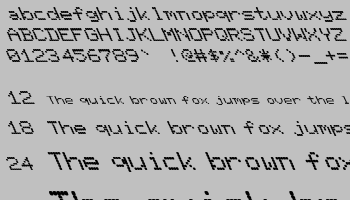 abcdefghijklmnopqrstuvwxyz
ABCDEFGHIJKLMNOPQRSTUVWXYZ
0123456789` !@#$%^&*()-_+=
12 The quick brown fox jumps over the l
18 The quick brown fox jumps
24 The quick brown fox